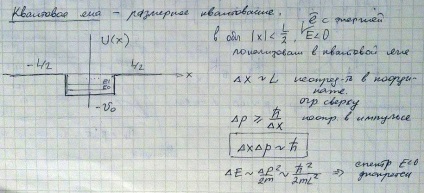 Квантовая яма – размерное квантование.
U(x)
-L/2
L/2
x
E1
E0
-U₀
в обл |x| < L/2, ē с энергией E<0
локализован в квантовой яме
Δx ~ L неопред-ть в координате.
огр сверху
Δp ≥ ħ/Δx неопр. в импульсе
ΔxΔp ~ ħ
ΔE ~ Δp²/2m ~ ħ²/2mL² ⇒ спектр E<0
дискретен